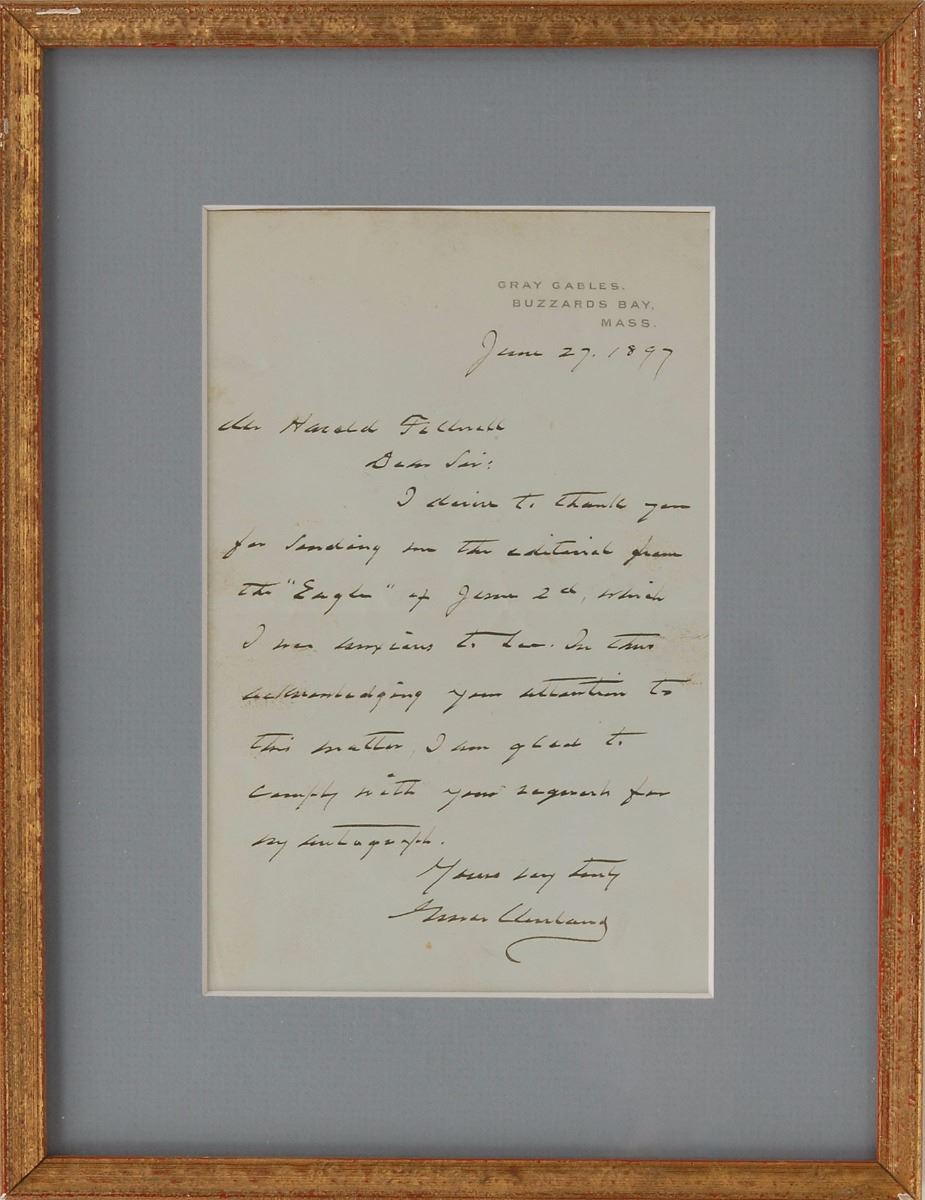 GRAY GABLES.
BUZZARDS BAY,
MASS.
June 27. 1897
Mr Harold
Dear Sir:
I desire to thank you
for sending me the editorial from
the "Eagle" of June 2d, which
I was anxious to see. In thus
acknowledging your attention to
this matter, I am glad to
comply with your request for
my autograph.
Yours very truly
Grover Cleveland